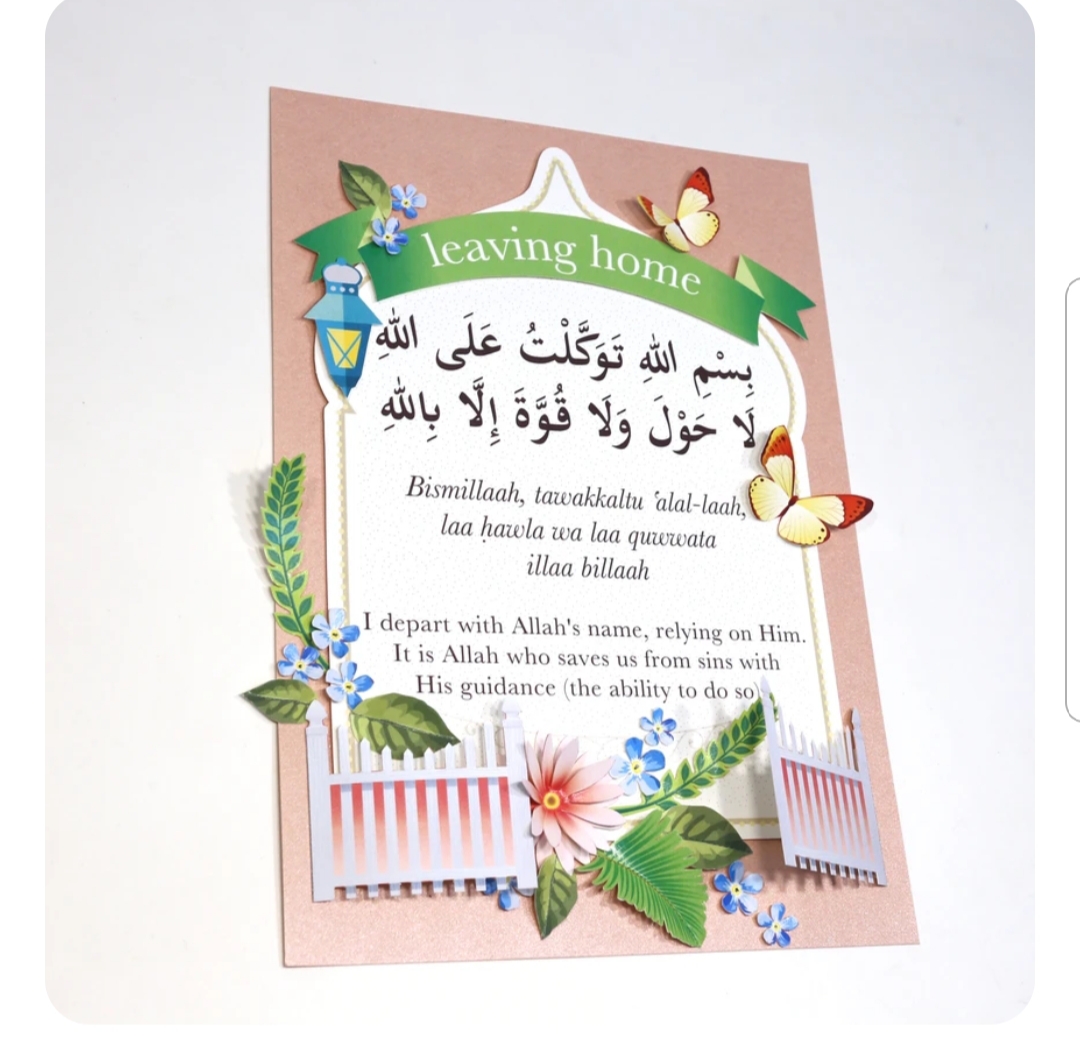 leaving home
بِسْمِ اللهِ تَوَكَّلْتُ عَلَى اللهِ
لَا حَوْلَ وَلَا قُوَّةَ إِلَّا بِاللهِ
Bismillaah, tawakkaltu ‘alal-laah,
laa ḥawla wa laa quwwata
illaa billaah
I depart with Allah's name, relying on Him.
It is Allah who saves us from sins with
His guidance (the ability to do so)